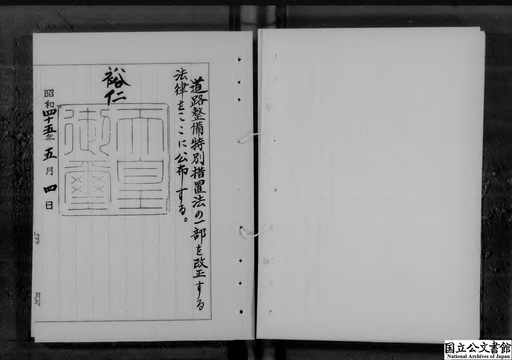 道路整備特別措置法の一部を改正する
法律をここに公布する。
裕仁
天皇
御璽
昭和四十五年五月四日
国立公文書館
National Archives of Japan